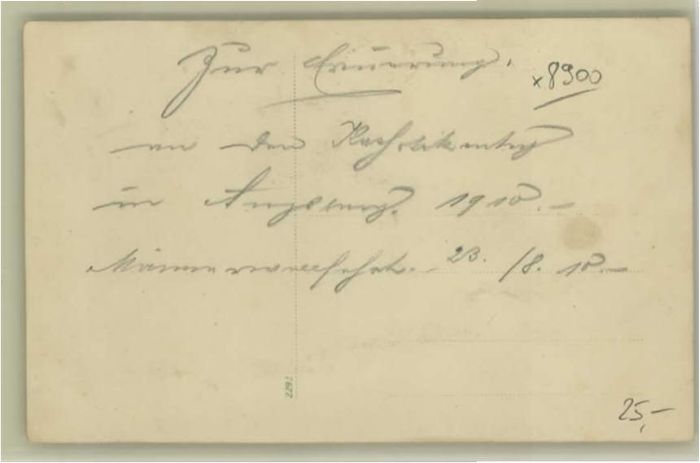 Zur Erinnerung.
x8900
an den Katholikentag
in Augsburg. 1910.-
Männerwallfahrt. 23. /8. 10.-
2292
25,-